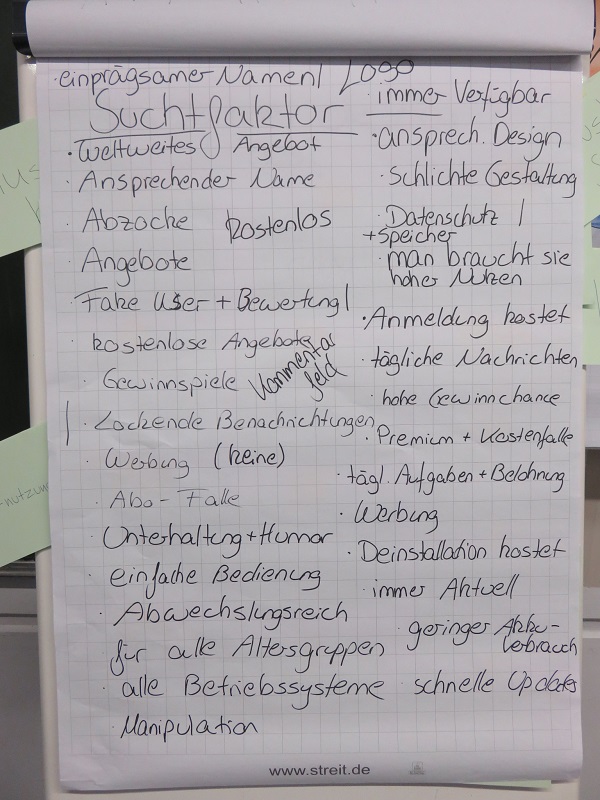 · einprägsamer Namen / Logo
Suchtfaktor
· Weltweites Angebot
· Ansprechender Name
· Abzocke kostenlos
· Angebote
· Fake User + Bewertung |
· kostenlose Angebote
Kommentar
feld
· Gewinnspiele
| · Lockende Benachrichtungen
· Werbung (keine)
· Abo - Falle
· Unterhaltung + Humor
· einfache Bedienung
· Abwechslungsreich
· für alle Altersgruppen
· alle Betriebssysteme
· Manipulation
· immer Verfügbar
· ansprech. Design
· schlichte Gestaltung
· Datenschutz |
+ Speicher
· man braucht sie
hoher Nutzen
· Anmeldung kostet
· tägliche Nachrichten
· hohe Gewinnchance
· Premium + Kostenfalle
· tägl. Aufgaben + Belohnung
· Werbung
· Deinstallation kostet
· immer Aktuell
· geringer Akku-
verbrauch
· schnelle Updates
www.streit.de
-nutzun